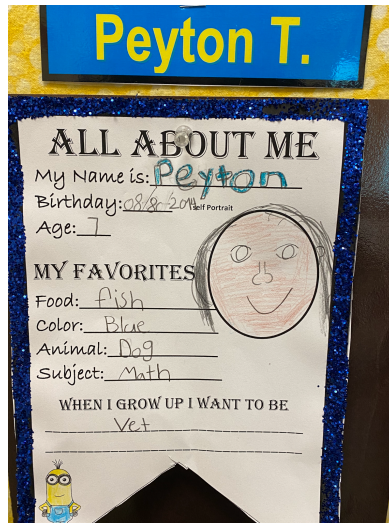 Peyton T.
ALL ABOUT ME
My Name is: Peyton
Birthday: 08/8/2014
Self Portrait
Age: 7
MY FAVORITES
Food: fish
Color: Blue
Animal: Dog
Subject: Math
WHEN I GROW UP I WANT TO BE
Vet